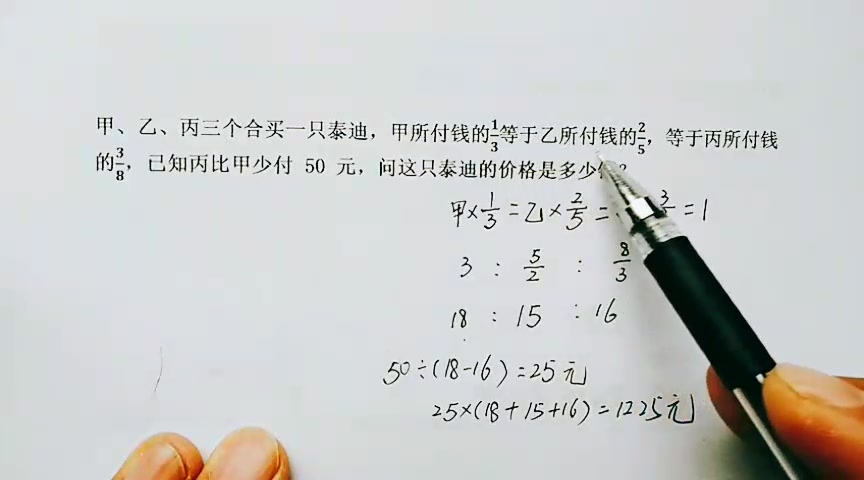 甲、乙、丙三个合买一只泰迪，甲所付钱的1/3等于乙所付钱的2/5，等于丙所付钱
的3/8，已知丙比甲少付 50 元，问这只泰迪的价格是多少
甲×1/3=乙×2/5= 3 =1
3 : 5/2 : 8/3
18 : 15 : 16
50÷(18-16)=25元
25×(18+15+16)=1225元